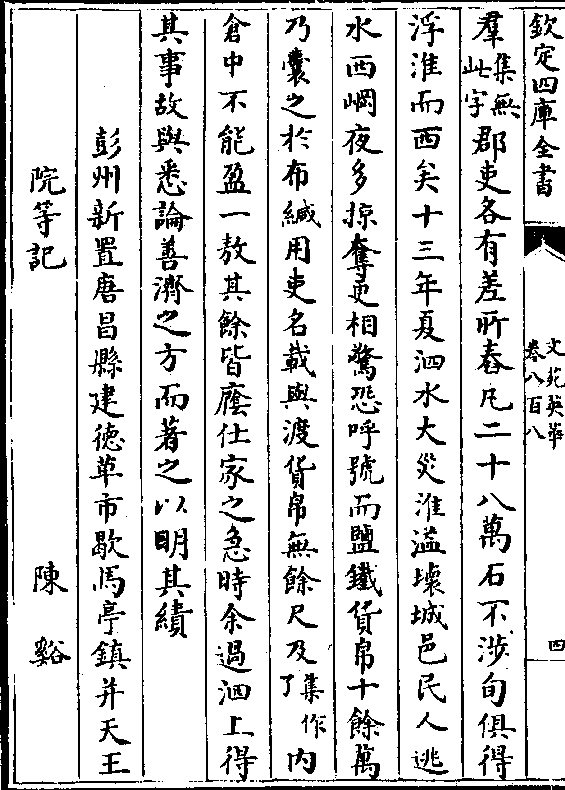 欽定四庫全書
文苑英華
卷八百八
四
羣集無此字郡吏各有差所舂凡二十八萬石不涉旬俱得
浮淮而西矣十三年夏泗水大災淮溢壞城邑民人逃
水西岡夜多掠奪更相驚恐呼號而鹽鐵貨帛十餘萬
乃囊之於布緘用吏名載與渡貨帛無餘尺及集作了内
倉中不能盈一敖其餘皆廕仕家之急時余過泗上得
其事故與悉論善濟之方而著之以明其績
彭州新置唐昌縣建德草市歇馬亭鎮并天王
院等記
陳谿